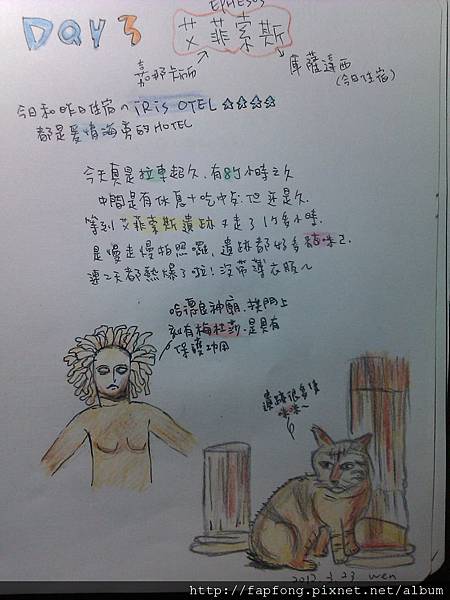 EPHESUS
DAY 3 艾菲索斯
嘉那卡麗
庫薩達西
(今日住宿)
今日和昨日住宿的 IRIS OTEL ☆☆☆☆
都是愛情海旁的HOTEL
今天真是拉車超久.有8個小時之久
中間是有休息+吃中文.但還是久.
等到艾菲索斯遺跡又走了1個多小時.
是慢走慢拍照囉.遺跡都好多貓咪ㄛ.
連2天都熱爆了啦!沒帶薄衣服~
哈德良神廟.拱門上
刻有梅杜莎.是具有
保護功用
遺跡很多隻
咪咪~
2012 3 23 wen
http://fapfong.pixnet.net/album